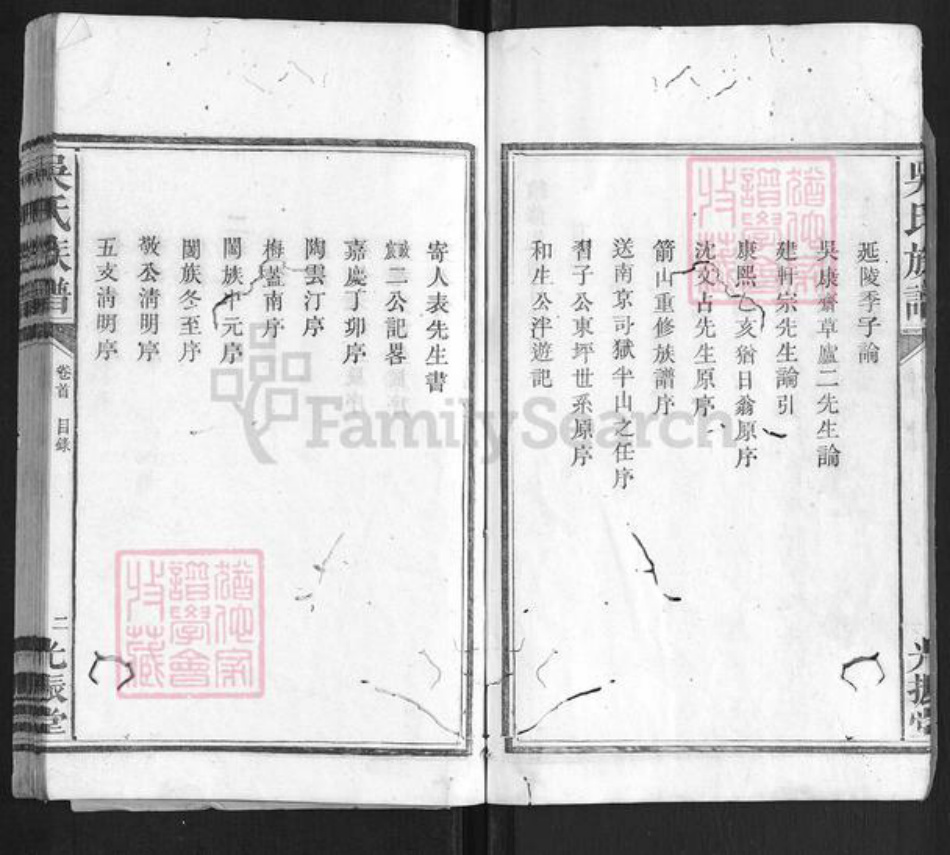 吳氏族譜
延陵季子論
吳康齋草廬二先生論
建軒宗先生論引
康熙乙亥猶日翁原序
沈文占先生原序
箭山重修族譜序
送南京司獄半山之任序
習子公東坪世系原序
和生公泮遊記
光振堂
寄人表先生書
二公記畧
嘉慶丁卯序
陶雲汀序
梅蓋南序
闔族中元序
闔族冬至序
敬公清明序
五支清明序
吳氏族譜
卷首 目錄
二
光振堂
譜學會
收藏
譜學會
收藏
FamilySearch